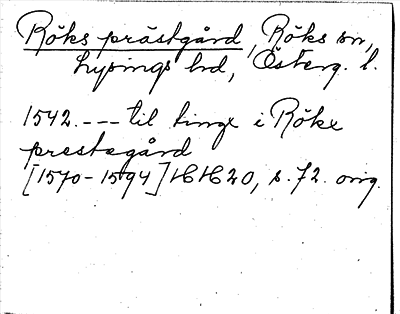 Röks prästgård, Röks sn,
Lysings hd, Österg. l.
1542. --- til tinge i Röke
prestegård
[1570-1594] HH 20, s. 72. orig.